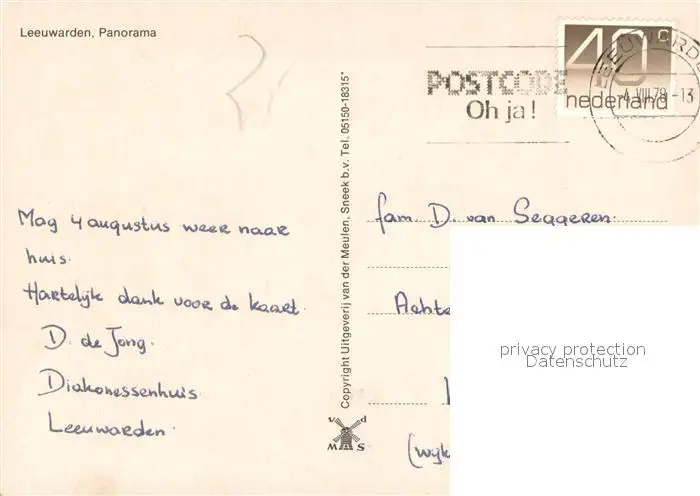 Leeuwarden, Panorama
40c
nederland
POSTCODE
Oh ja!
LEEUWARDEN
-4.VIII.78.-13
Copyright Uitgeverij van der Meulen, Sneek b.v. Tel. 05150-18315*
Mag 4 augustus weer naar
huis.
Hartelijk dank voor de kaart.
D. de Jong.
Diakonessenhuis
Leeuwarden.
fam. D. van Seggeren.
Achte
(wijk
v d
M S
privacy protection
Datenschutz